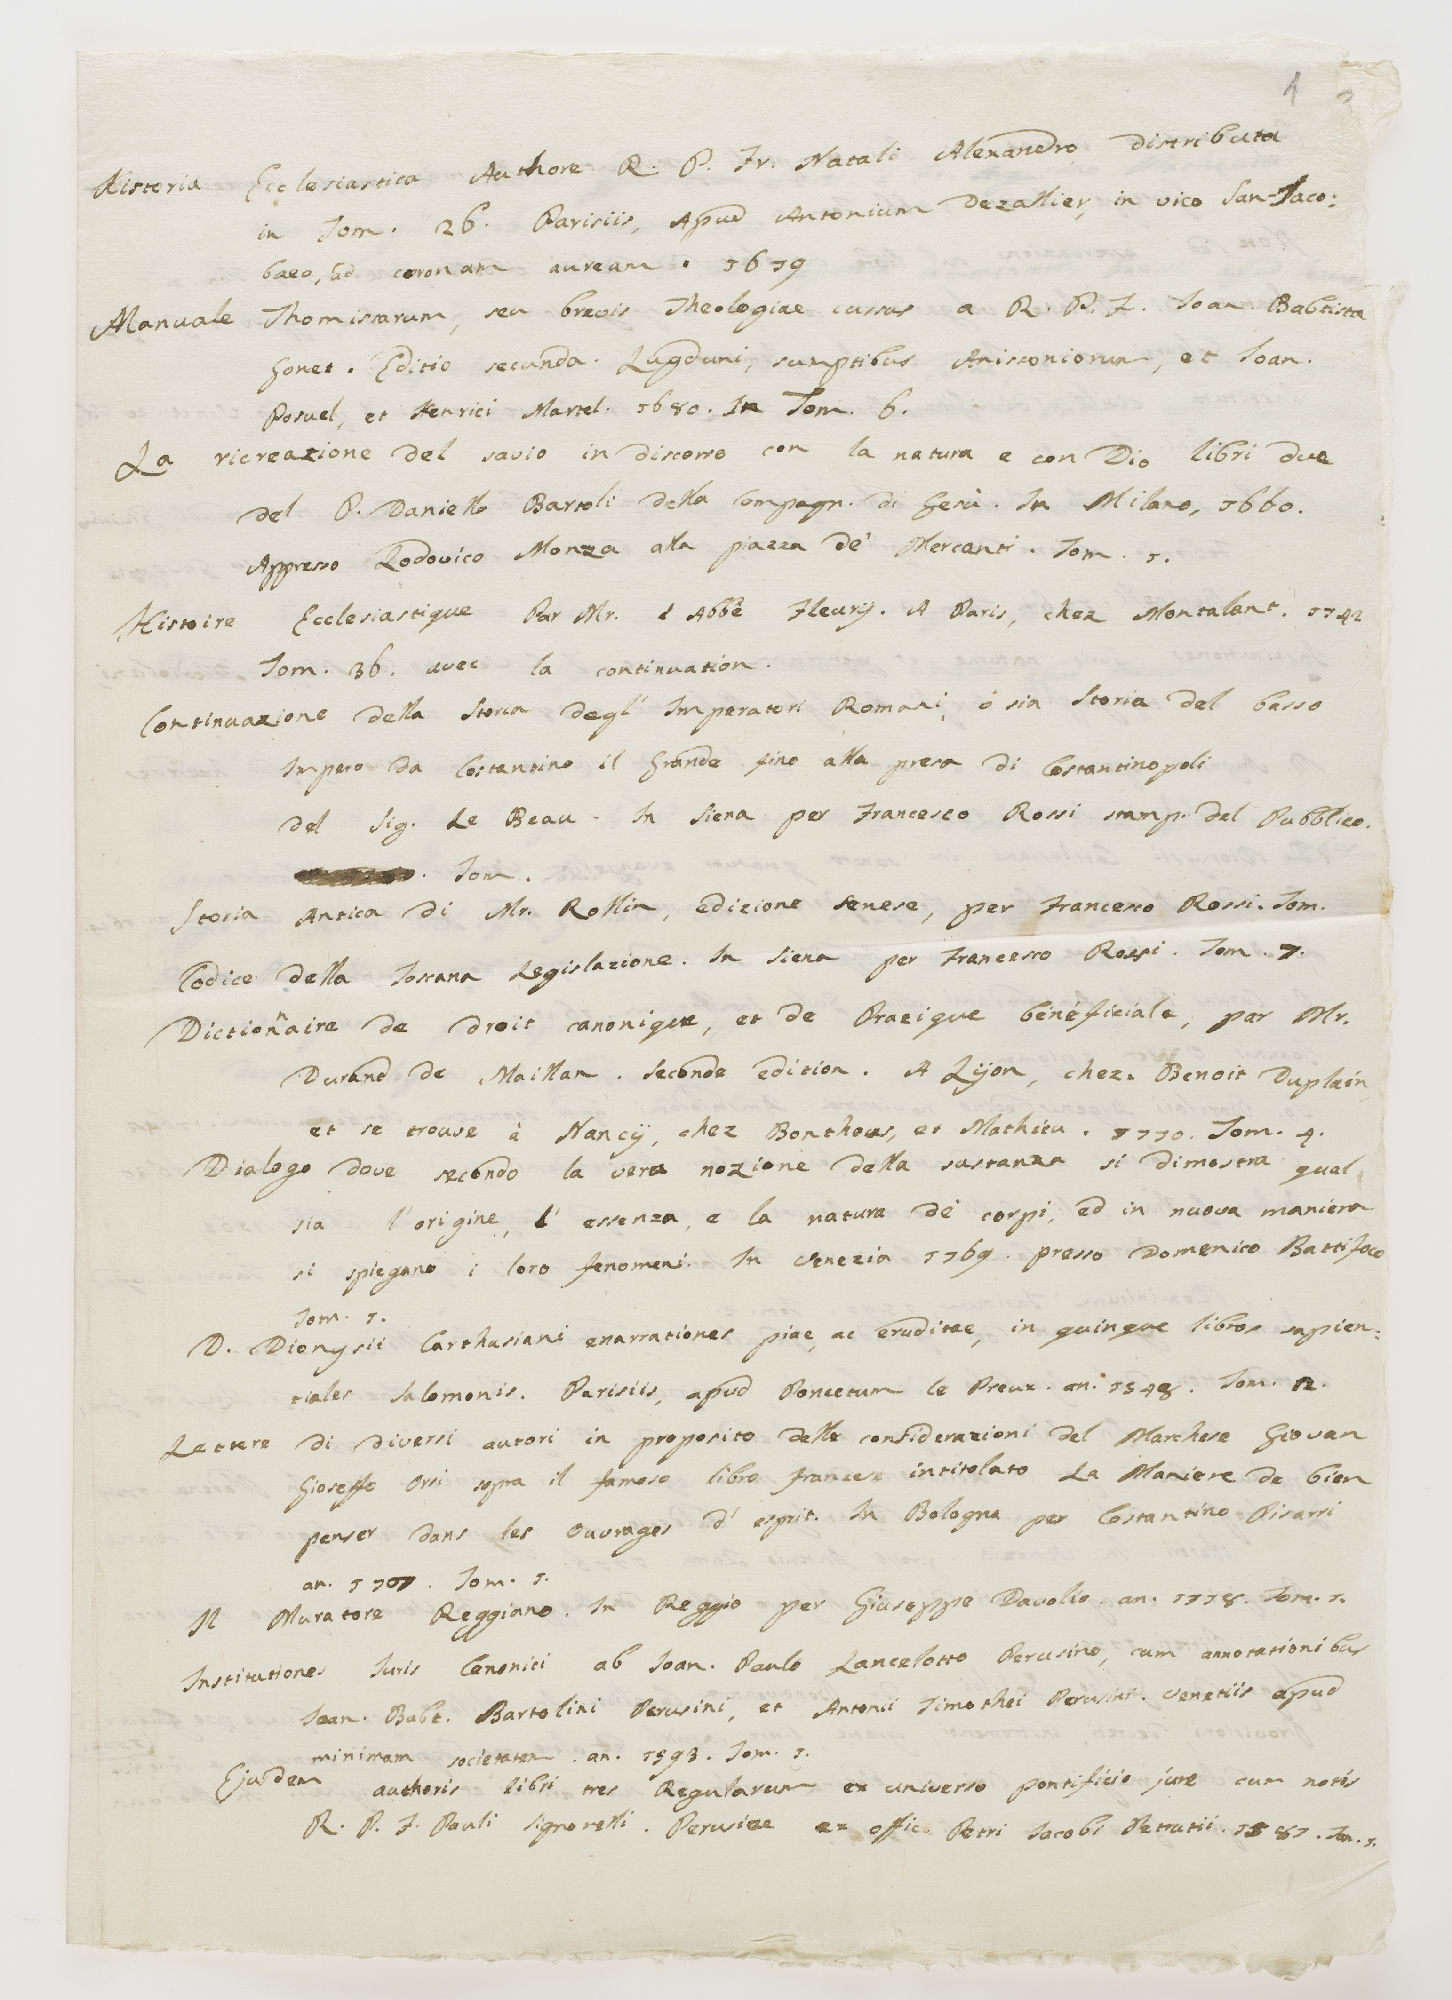 1
Historia Ecclesiastica Authore R. P. Fr. Natali Alexandro distributa
in Tom. 26. Parisiis, Apud Antonium Dezallier, in vico San-Jaco:
baeo, ad coronam auream. 1679
Manuale Thomistarum, seu brevis Theologiae cursus a R. P. F. Joan. Babtista
Gonet. Editio secunda. Lugduni, sumptibus Anissoniorum, et Joan.
Posuel, et Henrici Martel. 1680. In Tom. 6.
La ricreazione del savio in discorso con la natura e con Dio libri due
del P. Daniello Bartoli della Compagn. di Gesù. In Milano, 1660.
Appresso Lodovico Monza alla piazza de' Mercanti. Tom. 1.
Histoire Ecclesiastique Par Mr. l'Abbé Fleury. A Paris, chez Montalant. 1742
Tom. 36. avec la continuation.
Continuazione della Storia degl' Imperatori Romani, o sia Storia del basso
Impero da Costantino il Grande fino alla presa di Costantinopoli
del Sig. Le Beau. In Siena per Francesco Rossi stamp. del Pubblico.
Tom.
Storia Antica di Mr. Rollin, edizione Senese, per Francesco Rossi. Tom.
Codice della Toscana Legislazione. In Siena per Francesco Rossi. Tom. 7.
Dictionnaire de droit canonique, et de Praticque bénéficiale, par Mr.
Durand de Maillan. Seconde edition. A Lyon, chez. Benoit Duplain,
et se trouve à Nancy, chez Bonthous, et Mathieu. 1770. Tom. 4.
Dialogo dove secondo la vera nozione della sustanza si dimostra qual
sia l'origine, l' essenza, e la natura de' corpi, ed in nuova maniera
si spiegano i loro fenomeni. In Venezia 1769. presso Domenico Battifoco
Tom. 1.
D. Dionysii Carthusiani enarrationes piae, ac eruditae, in quinque libros sapien:
tiales Salomonis. Parisiis, apud Poncetum le Preux. an. 1548. Tom.
Lettere di diversi autori in proposito delle considerazioni del Marchese Giovan
Gioseffo Orsi sopra il famoso libro francese intitolato La Maniere de bien
penser dans les Ouvrages d' esprit. In Bologna per Costantino Pisarri
an. 1707. Tom. 1.
Il Muratore Reggiano. In Reggio per Giuseppe Davolio. an. 1778. Tom. 1.
Institutiones Juris Canonici ab Joan. Paulo Lancelotto Perusino, cum annotationibus
Joan. Babt. Bartolini Perusini, et Antonii Timothei Perusini. Venetiis apud
minimam societatem. an. 1593. Tom. 1.
Ejusdem authoris libri tres Regularum ex universo pontificio jure cum notis
R. P. F. Pauli Signorelli. Perusiae ex offic. Petri Jacobi Petrutii. 1587. Tom. 1.